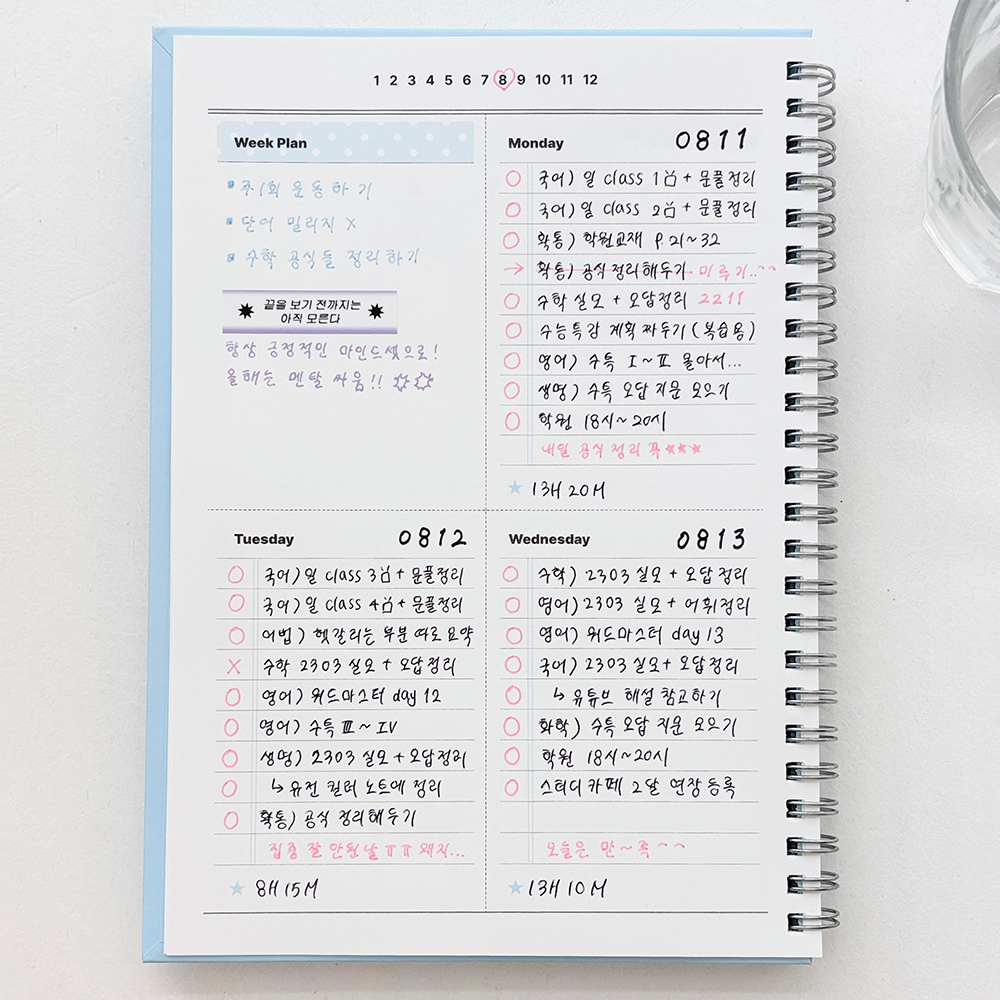 1 2 3 4 5 6 7 8 9 10 11 12
Week Plan
주1회 운동하기
단어 밀리지 X
수학 공식들 정리하기
끝을 보기 전까지는
아직 모른다
항상 긍정적인 마인드셋으로!
올해는 멘탈 싸움!!
Monday 0811
국어) 일 class 1강 + 문풀정리
국어) 일 class 2강 + 문풀정리
확통) 학원교재 P.21~32
→ 확통) 공식 정리해두기 미루기..^^
수학 실모 + 오답정리 2211
수능특강 계획 짜두기 (복습용)
영어) 수특 I~II 몰아서...
생명) 수특 오답 지문 모으기
학원 18시~20시
내일 공식 정리 꼭★★★
★ 13H 20M
Tuesday 0812
국어) 일 class 3강 + 문풀정리
국어) 일 class 4강 + 문풀정리
어법) 헷갈리는 부분 여로 요약
X 수학 2303 실모 + 오답정리
영어) 워드마스터 day 12
영어) 수특 III ~ IV
생명) 2303 실모 + 오답정리
↳ 유전 컬러 노트에 정리
확통) 공식 정리해두기
집중 잘 안된날 ㅠㅠ 왜지...
★ 8H 15M
Wednesday 0813
수학) 2303 실모 + 오답정리
영어) 2303 실모 + 어휘정리
영어) 워드마스터 day 13
국어) 2303 실모 + 오답정리
↳ 유튜브 해설 참고하기
화학) 수특 오답 지문 모으기
학원 18시~20시
스터디카페 2달 연장 등록
오늘은 만~족^^
★ 13H 10M